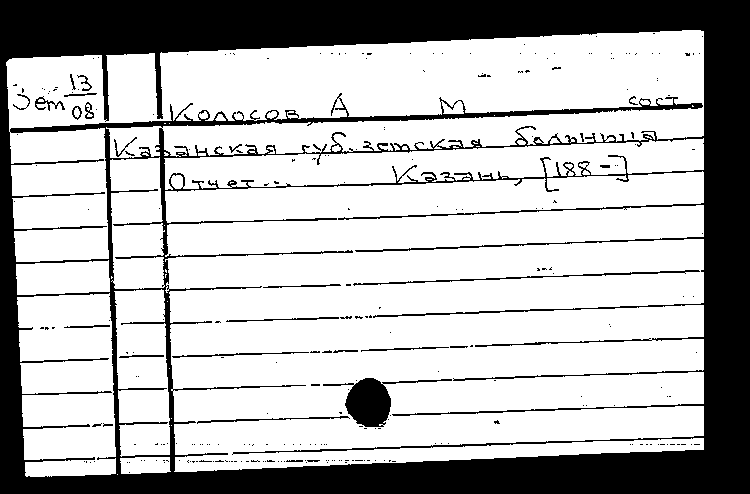 Зет 13/08
Колосов, А М сост
Казанская губ. земская больница
Отчет... Казань, [188-]